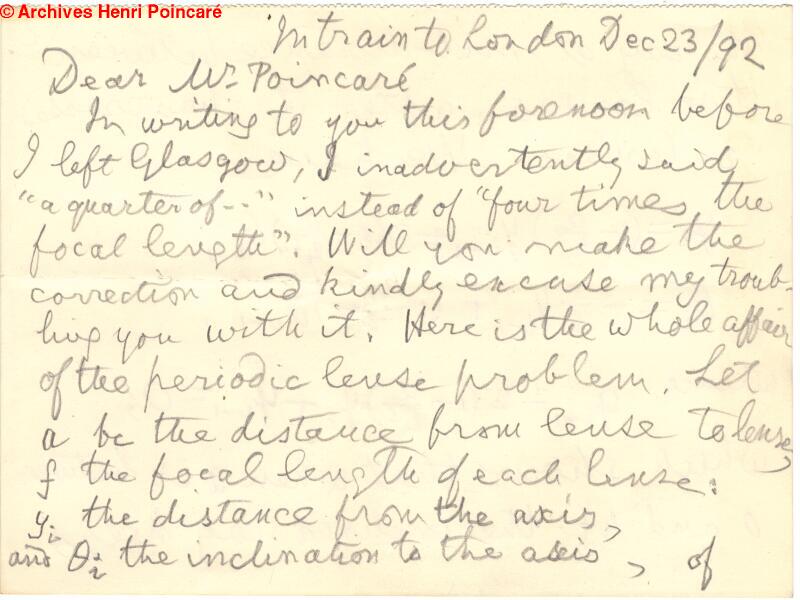 © Archives Henri Poincaré
In train to London Dec 23/92
Dear Mr. Poincaré
In writing to you this forenoon before
I left Glasgow, I inadvertently said
"a quarter of--" instead of "four times the
focal length". Will you make the
correction and kindly excuse my troub-
ling you with it. Here is the whole affair
of the periodic lense problem. Let
a be the distance from lense to lense,
f the focal length of each lense:
yᵢ the distance from the axis,
and θᵢ the inclination to the axis, of